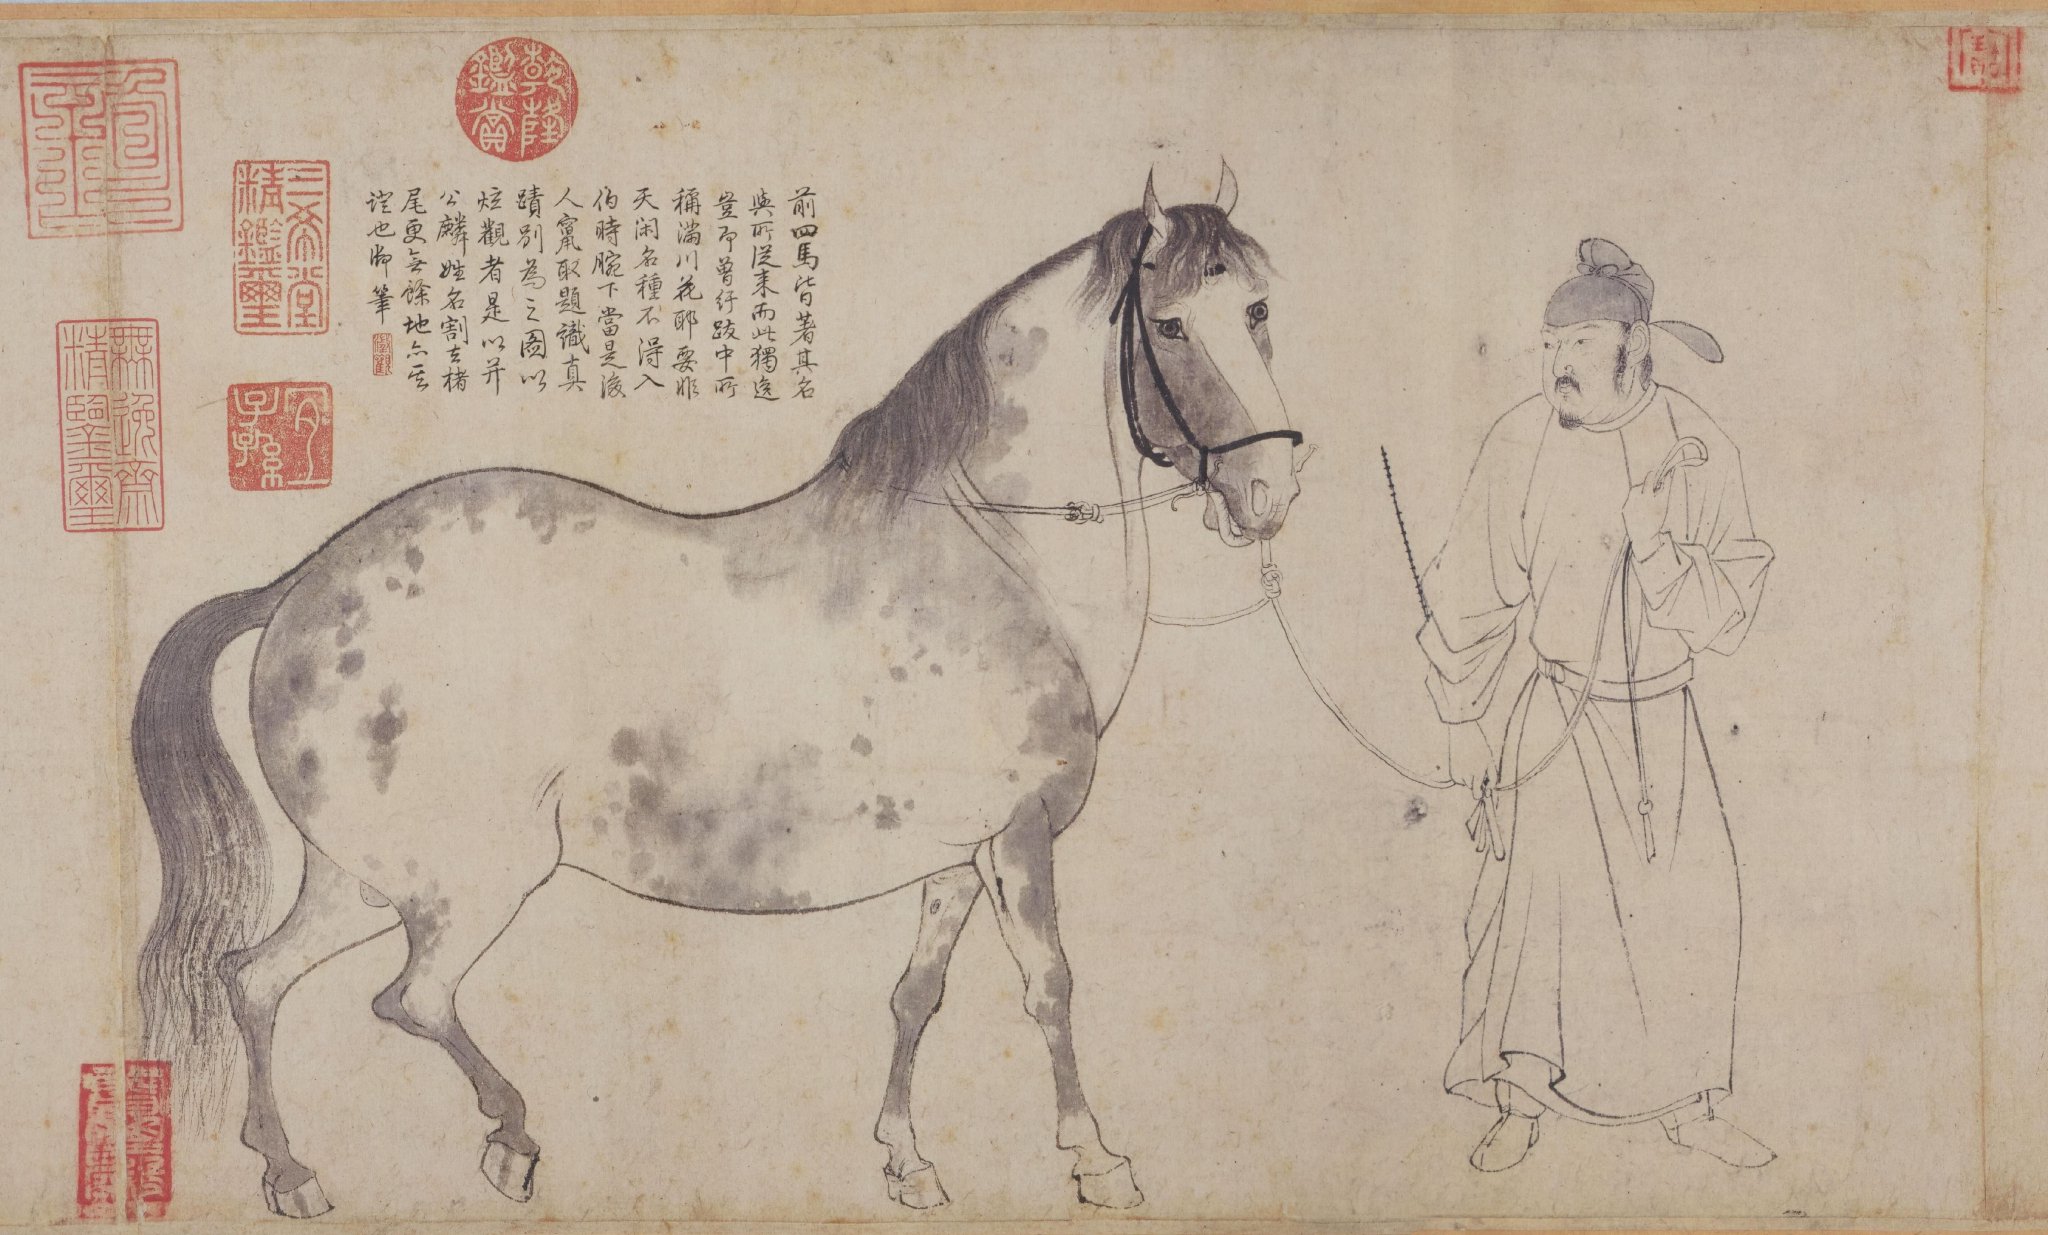 前四馬皆著其名
與所從來而此獨逸
豈即曾紆跋中所
稱滿川花耶要非
天閑名種不得入
伯時腕下當是後
人竄取題識真
蹟別為之圖以
炫觀者是以并
公麟姓名割去楮
尾更無餘地亦其
證也御筆
乾隆
鑑賞
三希堂
精鑑璽
宜
子孫
無逸齋
精鑒璽